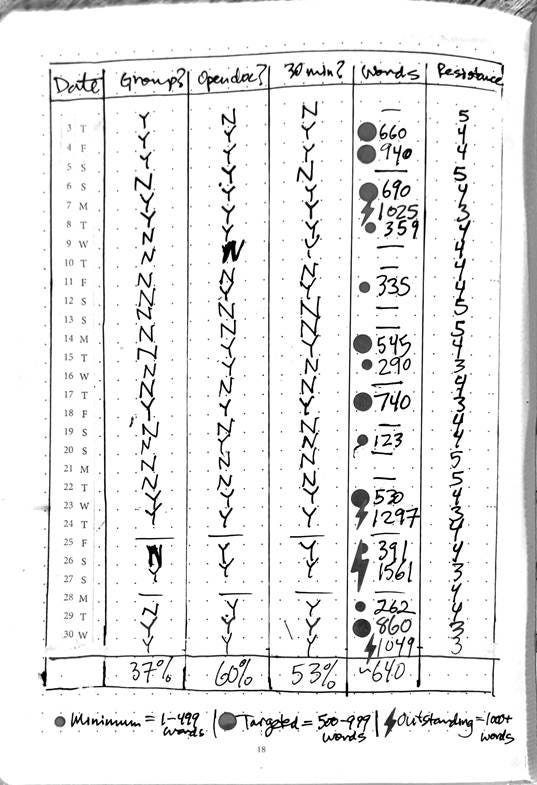 Date Group? Open doc? 30 min? Words Resistance
Y N N — 5
3 T Y Y Y 660 4
4 F Y Y Y 940 4
5 S Y Y N — 5
6 S N Y Y 690 4
7 M Y Y Y 1025 3
8 T Y Y Y 359 4
9 W N N — 4
10 T N N N — 4
11 F N Y Y 335 4
12 S N N N — 5
13 S N N N — 5
14 M N Y Y 545 4
15 T N Y Y 290 3
16 W N N N — 4
17 T Y Y Y 740 3
18 F N N N — 4
19 S N 123 4
20 S N N N — 5
21 M N N N — 5
22 T Y Y Y 530 4
23 W Y Y Y 1297 3
24 T — — — 4
25 F N Y Y 391 4
26 S Y Y Y 1561 3
27 S — — — 4
28 M N Y Y 262 4
29 T Y Y Y 860 3
30 W Y Y Y 1049 3
37% 60% 53% ~640
Minimum = 1-499 words | Targeted = 500-999 words | Outstanding = 1000+ words
18